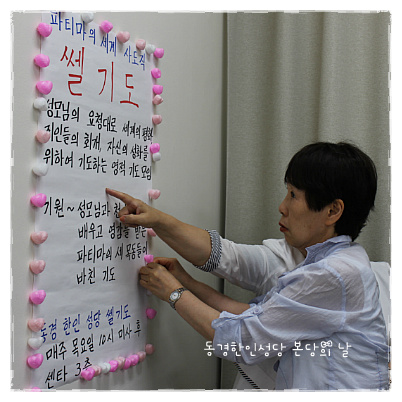 파티마의 세계 사도직
쎌 기도
성모님의 요청대로 세계의 평화
죄인들의 회개, 자신의 성화를
위하여 기도하는 영적 기도 모임
기원~ 성모님과
배우고
파티마의 세 목동들이
바친 기도
동경 한인 성당 쎌 기도
매주 목요일 10시 미사 후
센타 3층
동경한인성당 본당의 날